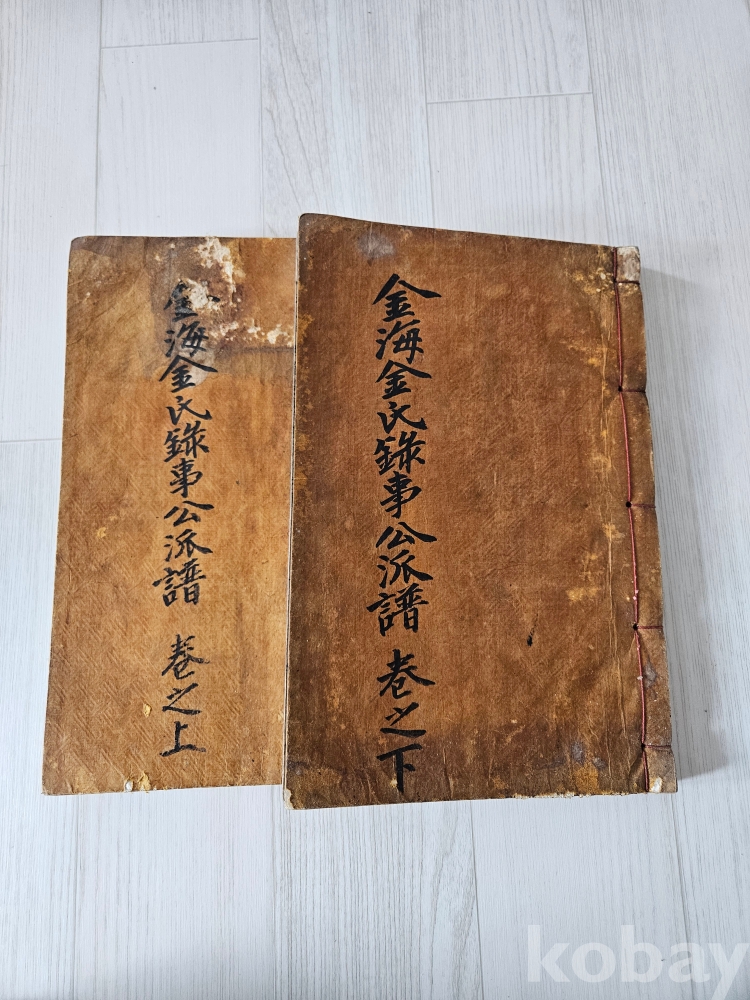 金海金氏錄事公派譜 卷之上
金海金氏錄事公派譜 卷之下
kobay